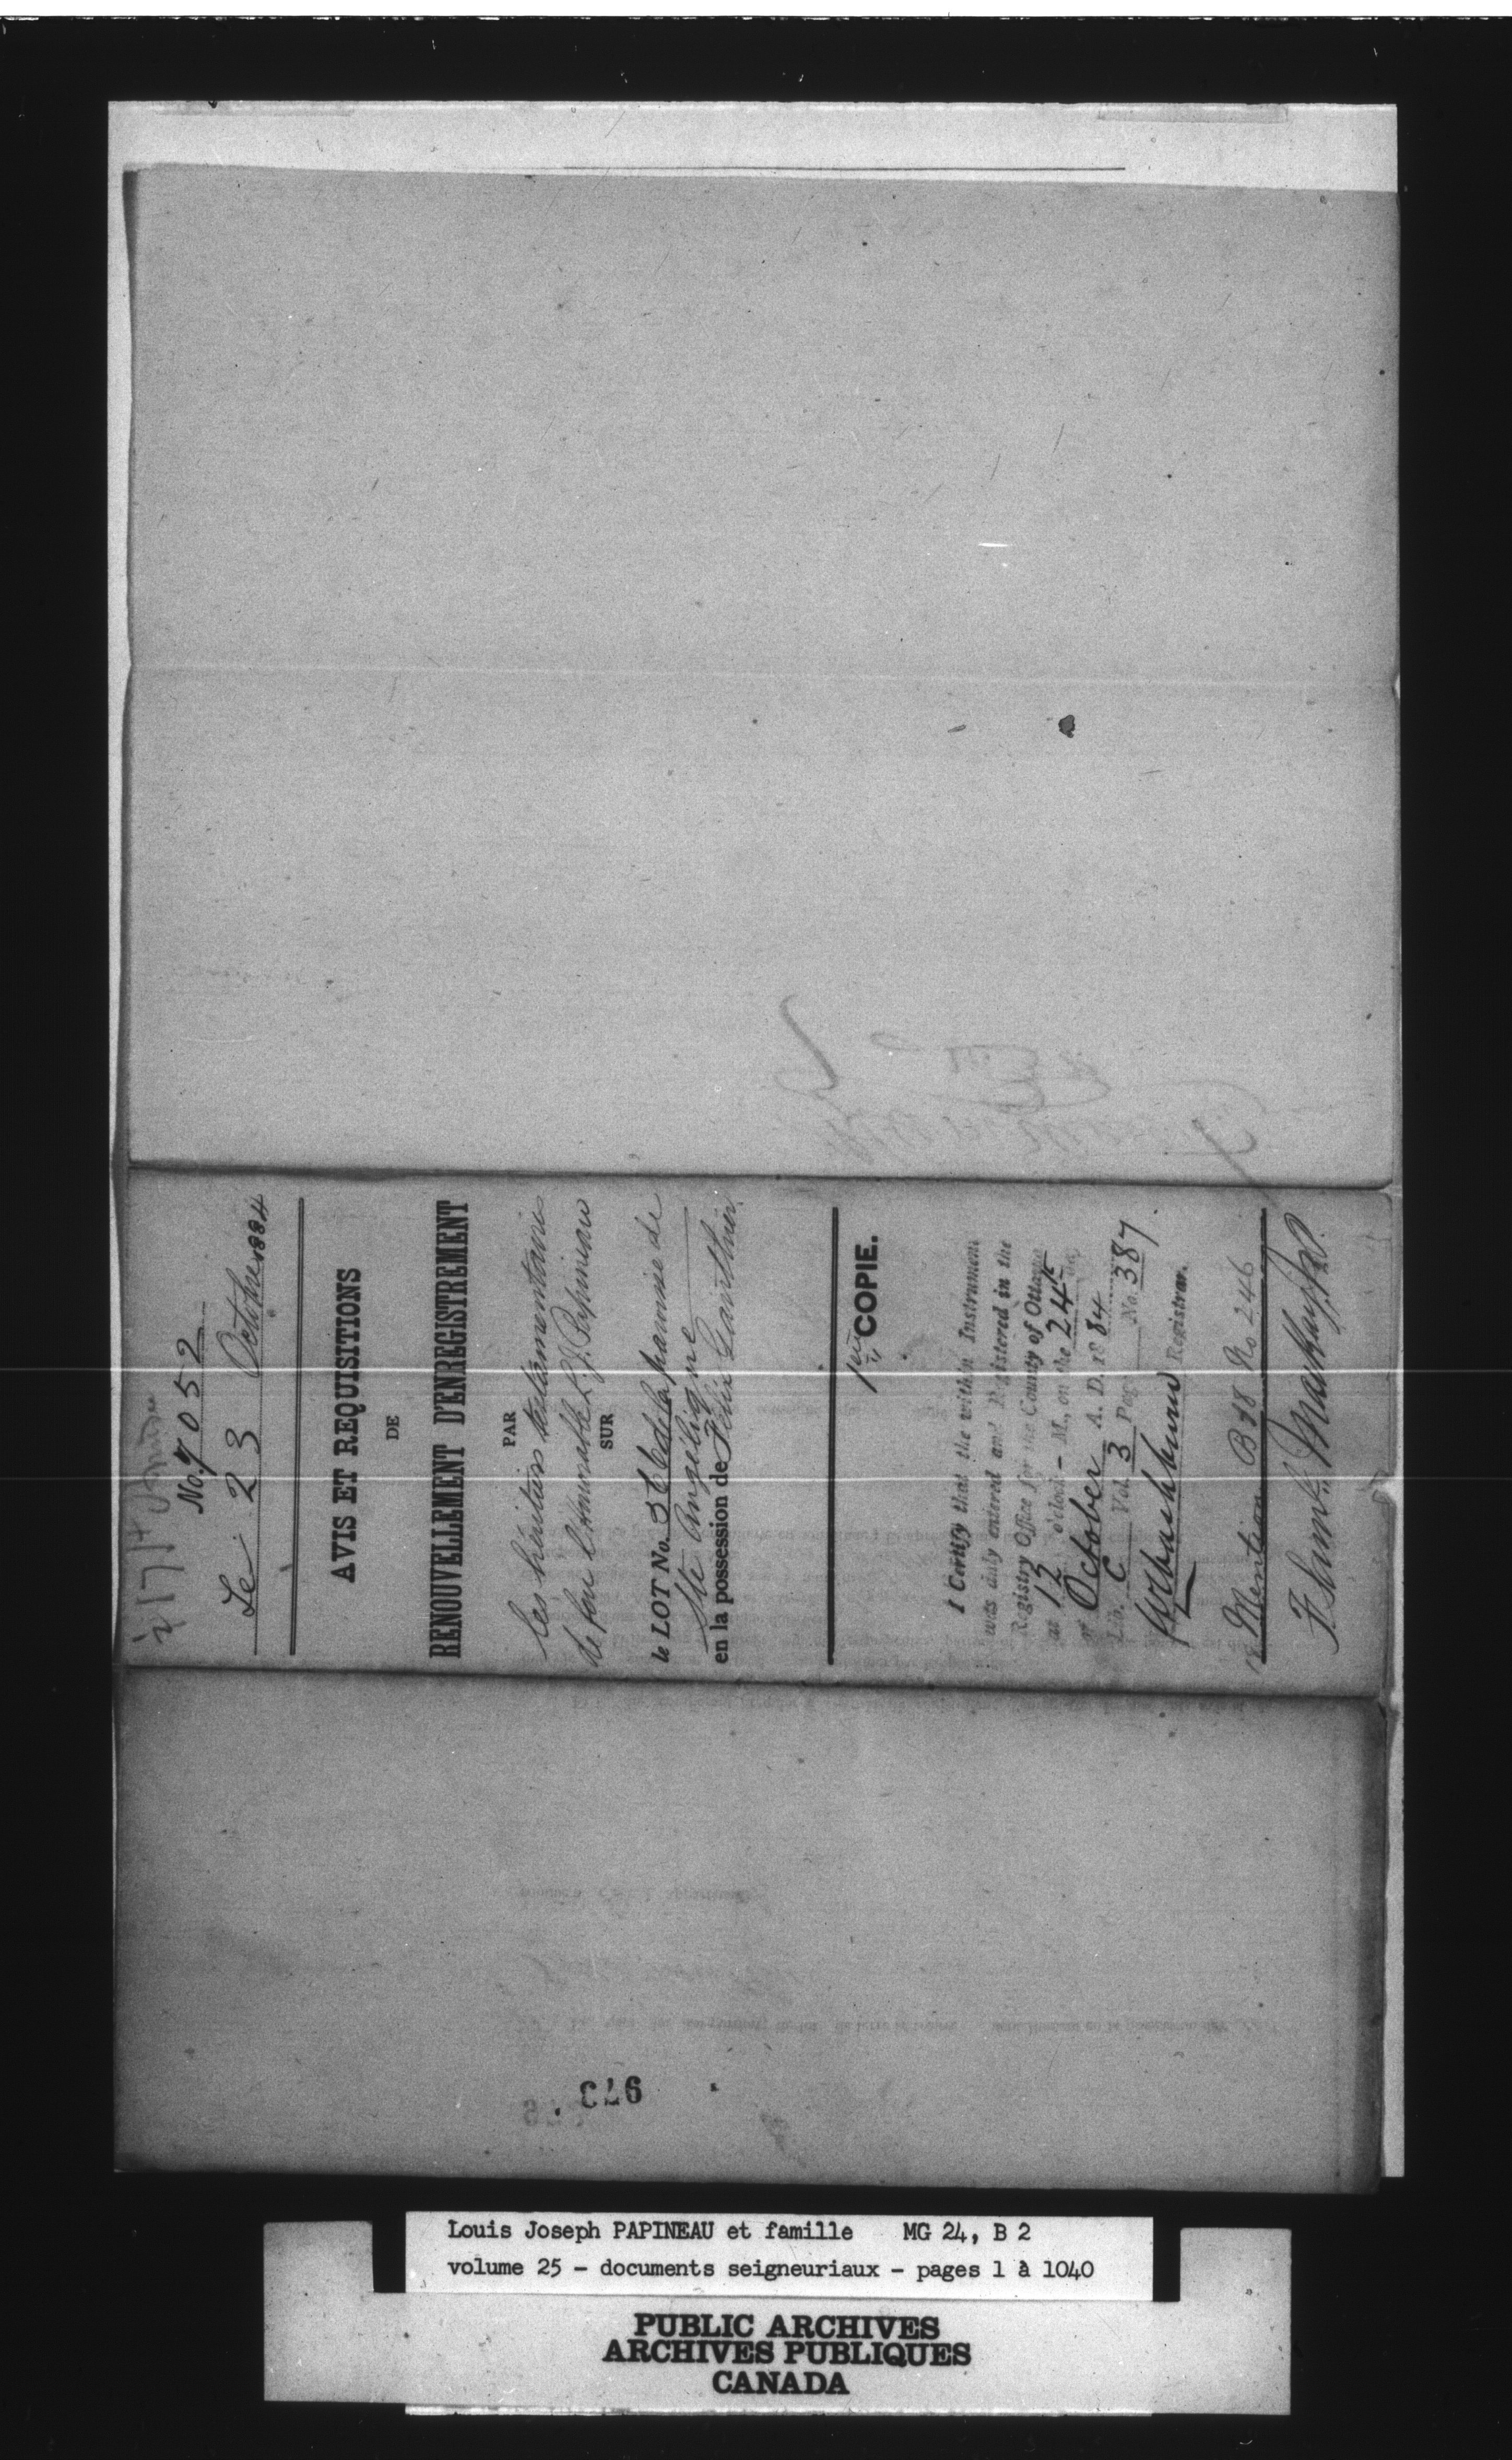 No. 7052
Le 23 Octobre 1884
AVIS ET REQUISITIONS
DE
RENOUVELLEMENT D'ENREGISTREMENT
PAR
les héritiers testamentaires
de feu l'Honorable L. J. Papineau
SUR
le LOT No. de la paroisse de
Ste Angélique
en la possession de Félix Gauthier
COPIE.
I Certify that the within Instrument
was duly entered and Registered in the
Registry Office for the County of Ottawa
at 12 o'clock - M., on the 24th day
of October A. D. 1884
Lib. C Vol. 3 Page No. 387
Registrar.
Mention B 18 No 246
973
Louis Joseph PAPINEAU et famille MG 24, B 2
volume 25 - documents seigneuriaux - pages 1 à 1040
PUBLIC ARCHIVES
ARCHIVES PUBLIQUES
CANADA